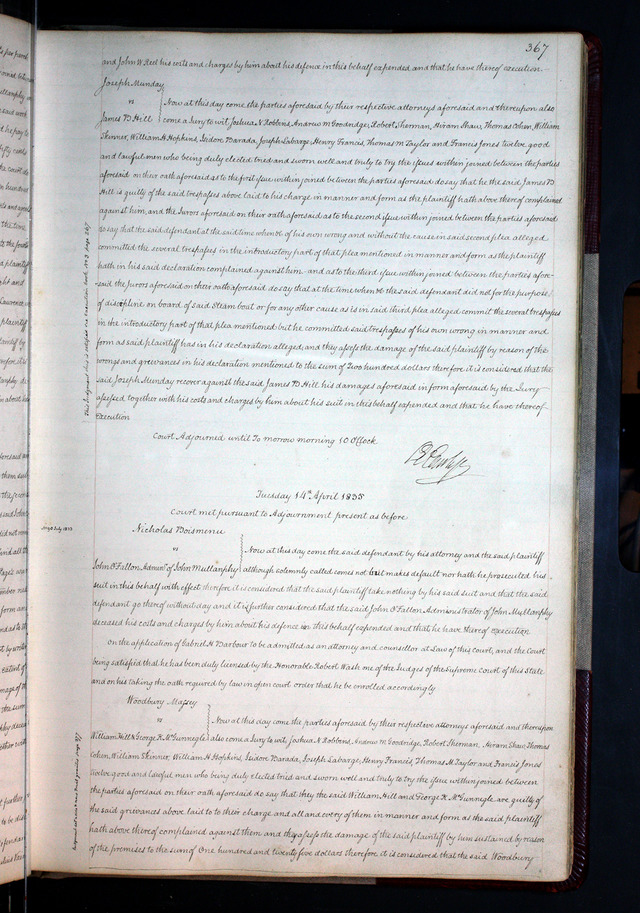 367
and John W Reel his costs and charges by him about his defence in this behalf expended and that he have thereof execution.
Joseph Munday
vs
James B Hill
Now at this day come the parties aforesaid by their respective attorneys aforesaid and thereupon also
come a Jury to wit, Joshua N Robbins, Andrew M Goodridge, Robert Sherman, Hiram Shaw, Thomas Cohen, William
Skinner, William H Hopkins, Isidore Barada, Joseph Labarge, Henry Francis, Thomas M Taylor and Francis Jones twelve good
and lawful men who being duly elected tried and sworn well and truly to try the issues within joined between the parties
aforesaid on their oath aforesaid as to the first issue within joined between the parties aforesaid do say that he the said James B
Hill is guilty of the said trespasses above laid to his charge in manner and form as the plaintiff hath above thereof complained
against him, and the Jurors aforesaid on their oath aforesaid as to the second issue within joined between the parties aforesaid
do say that the said defendant at the said time when &c of his own wrong and without the cause in said second plea alleged,
committed the several trespasses in the introductory part of that plea mentioned in manner and form as the plaintiff
hath in his said declaration complained against him. and as to the third issue within joined between the parties afore-
said the jurors aforesaid on their oath aforesaid do say that at the time when &c the said defendant did not for the purpose
of discipline on board of said Steam boat or for any other cause as is in said third plea alleged commit the several trespasses
in the introductory part of that plea mentioned but he committed said trespasses of his own wrong in manner and
form as said plaintiff has in his declaration alleged, and they assess the damage of the said plaintiff by reason of the
wrongs and grievances in his declaration mentioned to the sum of Two hundred dollars therefore it is considered that the
said Joseph Munday recover against the said James B Hill his damages aforesaid in form aforesaid by the Jury
assessed together with his costs and charges by him about his suit in this behalf expended and that he have thereof
Execution
Court Adjourned until To morrow morning 10 O'Clock
Tuesday 14th April 1835
Court met pursuant to Adjournment present as before
Nicholas Boismenu
vs
John O'Fallon Admr. of John Mullanphy
Now at this day come the said defendant by his attorney and the said plaintiff
although solemnly called comes not but makes default nor hath he prosecuted his
suit in this behalf with effect therefore it is considered that the said plaintiff take nothing by his said suit and that the said
defendant go thereof without day and it is further considered that the said John O'Fallon Administrator of John Mullanphy
deceased his costs and charges by him about his defence in this behalf expended and that he have thereof execution
On the application of Gabriel H Barbour to be admitted as an attorney and counsellor at Law of this Court, and the Court
being satisfied that he has been duly licensed by the Honorable Robert Wash one of the Judges of the Supreme Court of this State
and on his taking the oath required by law in open court order that he be enrolled accordingly
Woodbury Massey
vs
William Hill & George K McGunnegle
Now at this day come the parties aforesaid by their respective attorneys aforesaid and thereupon
also come a Jury to wit, Joshua N Robbins, Andrew M Goodridge, Robert Sherman, Hiram Shaw, Thomas
Cohen, William Skinner, William H Hopkins, Isidore Barada, Joseph Labarge, Henry Francis, Thomas M Taylor and Francis Jones
twelve good and lawful men who being duly elected tried and sworn well and truly to try the issue within joined between
the parties aforesaid on their oath aforesaid do say that they the said William Hill and George K McGunnegle, are guilty of
the said grievances above laid to to their charge and all and every of them in manner and form as the said plaintiff
hath above thereof complained against them and they assess the damage of the said plaintiff by him sustained by reason
of the premises to the sum of One hundred and twenty five dollars therefore it is considered that the said Woodbury